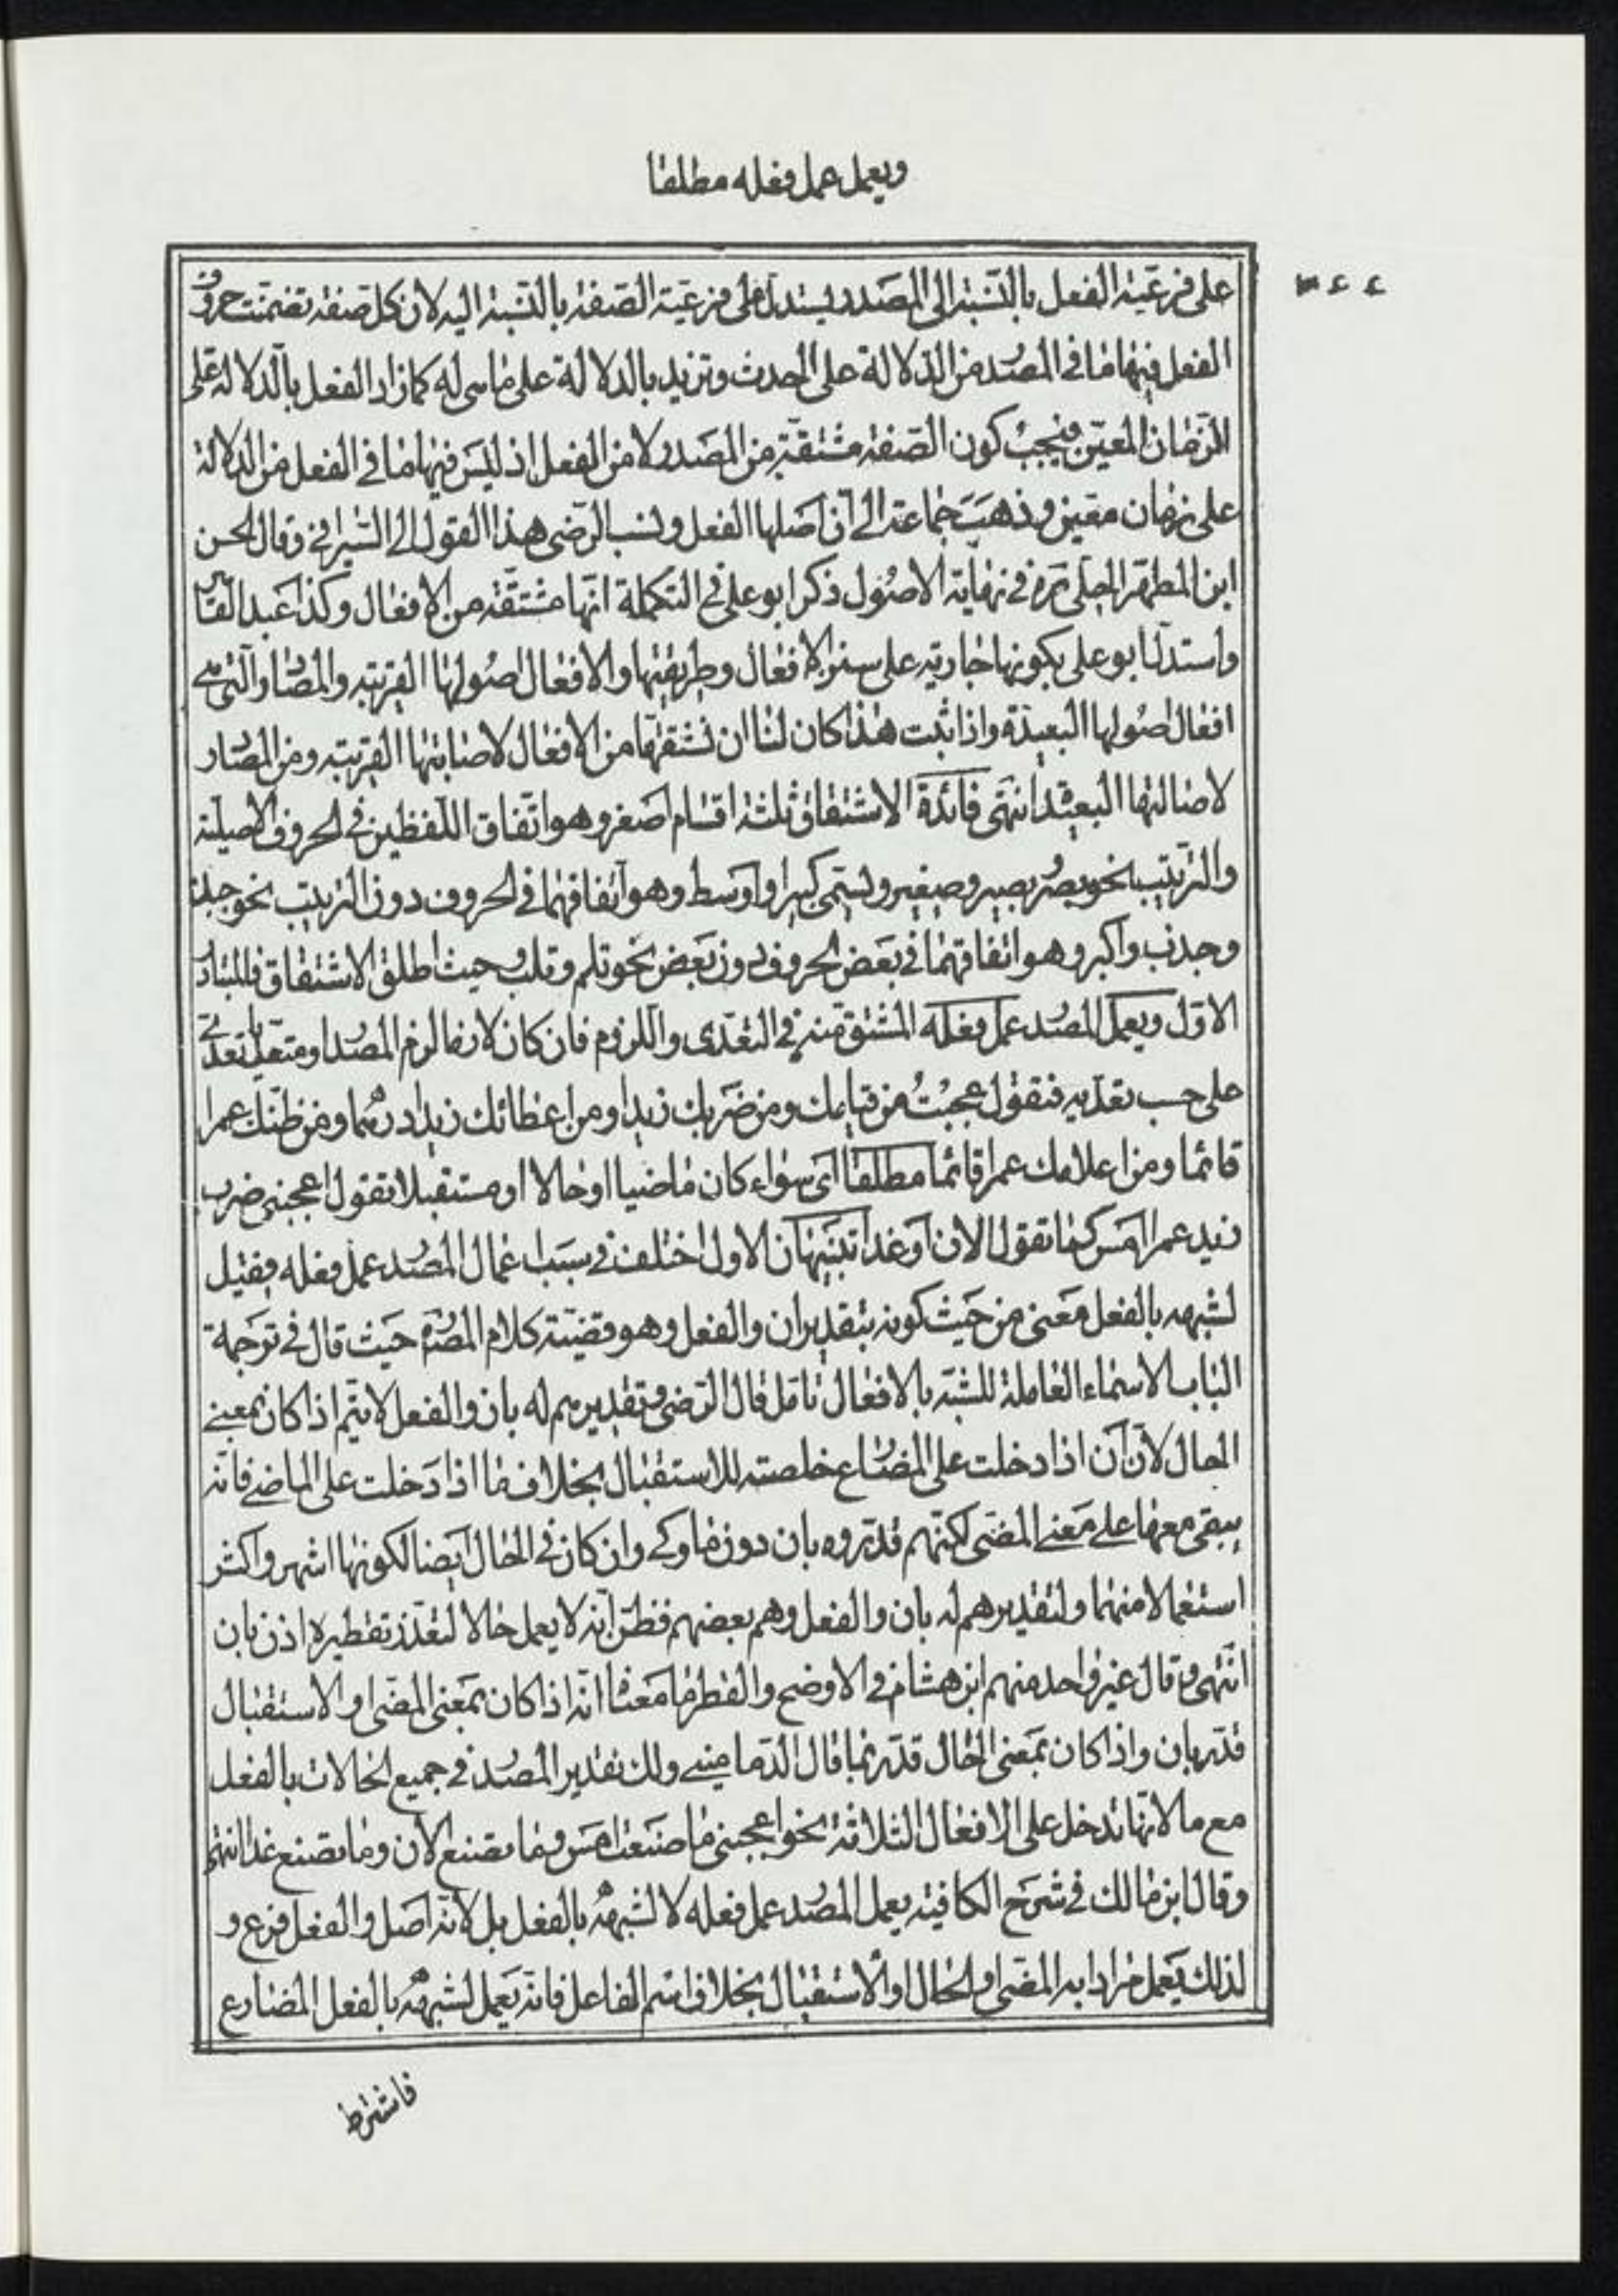 ويعمل عمل فعله مطلقا
على فرعيّة الفعل بالنّسبة الى المصدر يستدلّ على فرعيّة الصّفة بالنّسبة اليه لان كل صفة تضمّنت حروف
الفعل فيها ما في المصدر من الدّلالة على الحدث وتزيد بالدلالة على ما هي له كما زاد الفعل بالدّلالة على
الزّمان المعيّن فيجب كون الصّفة مشتقّة من المصدر لا من الفعل اذ ليس فيها ما في الفعل من الدلالة
على زمان معيّن وذهب جماعة الى انّ اصلها الفعل ونسب الرّضى هذا القول الى السّيرافي وقال الحسن
ابن المطهّر الحلّى ره في نهاية الاصول ذكر ابو على في التكملة انّها مشتقّة من الافعال وكذا عبد القاهر
واستدلّ ابو على بكونها جارية على سنن الافعال وطريقتها والافعال اصولها القريبة والمصادر الّتى هى
افعال اصولها البعيدة واذا ثبت هذا كان لنا ان نشتقّها من الافعال لاصالتها القريبة ومن المصادر
لاصالتها البعيدة انتهى فائدة الاشتقاق ثلثة اقسام اصغر وهو اتّفاق اللّفظين في الحروف الاصيلة
والتّرتيب نحو بصر بصير وصغير ويسمّى كبيرا واوسط وهو اتفاقهما في الحروف دون التّرتيب نحو جبذ
وجذب واكبر وهو اتفاقهما في بعض الحروف دون بعض نحو ثلم وثلب وحيث اطلق الاشتقاق فالمتبادر
الاوّل ويعمل المصدر عمل فعله المشتق منه في التّعدّى واللّزوم فان كان لازما لزم المصدر او متعدّيا تعدّى
على حسب تعدّيه فتقول عجبت من قيامك ومن ضربك زيدا ومن اعطائك زيدا درهما ومن ظنّك عمرا
قائما ومن اعلامك عمرا قائما مطلقا اى سواء كان ماضيا او حالا او مستقبلا تقول اعجبنى ضرب
زيد عمرا امس كما تقول الان او غدا تنبيهان الاول اختلف في سبب اعمال المصدر عمل فعله فقيل
لشبهه بالفعل معنى من حيث كونه بتقدير ان والفعل وهو قضيّة كلام المصره حيث قال في ترجمة
الباب الاسماء العاملة للشبّه بالافعال تامّل قال الرّضى وتقديرهم له بان والفعل لا يتمّ اذا كان بمعنى
الحال لانّ ان اذا دخلت على المضارع خلصته للاستقبال بخلاف ما اذا دخلت على الماضى فانّه
يبقى معها على معنى المضى لكنّهم قدّروه بان دون ما وكى وان كان في الحال ايضا لكونها اشهر واكثر
استعمالا منهما ولتقديرهم له بان والفعل وهم بعضهم فظنّ انّه لا يعمل حالا لتعذّر تقطيره اذن بان
انتهى وقال غير واحد منهم ابن هشام في الاوضح والقطر ما معناه انّه اذا كان بمعنى المضى او الاستقبال
قدّر بان واذا كان بمعنى الحال قدّر بما قال الدّمامينى ولك تقدير المصدر في جميع الحالات بالفعل
مع ما لانّها تدخل على الافعال الثلاثة نحو اعجبنى ما صنعت امس وما تصنع الان وما تصنع غدا انتهى
وقال ابن مالك في شرح الكافية يعمل المصدر عمل فعله لا لشبهه بالفعل بل لانّه اصل والفعل فرع و
لذلك يعمل مرادا به المضى والحال او الاستقبال بخلاف اسم الفاعل فانّه يعمل لشبهه بالفعل المضارع
فاشترط